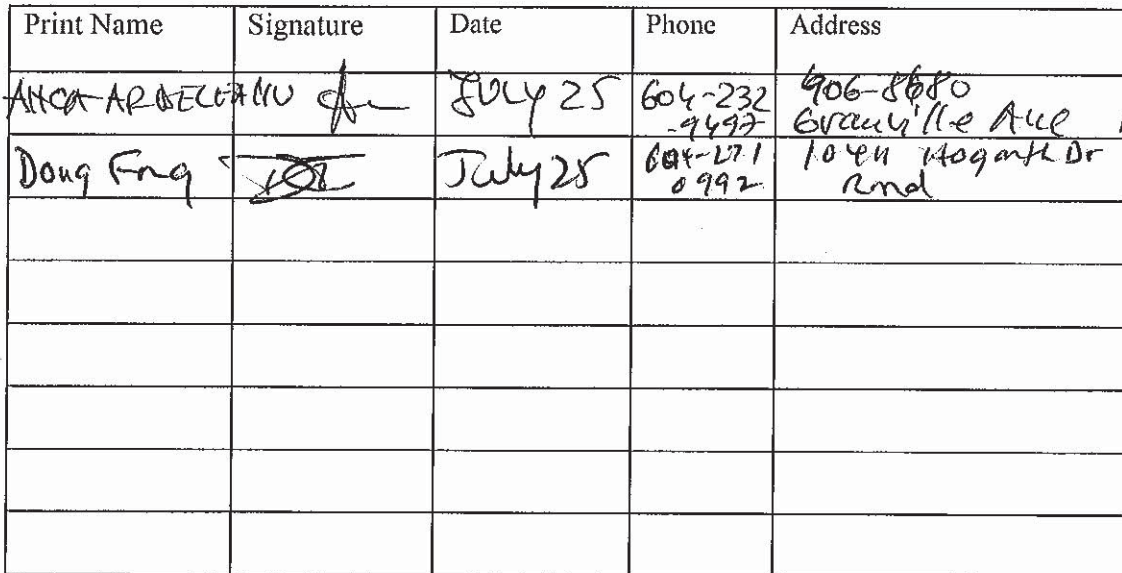 Print Name Signature Date Phone Address
ANCA ARDELEANU July 25 604-232 906-8680
-9497 Granville Ave
Doug Fng July 25 604-271 Hogarth Dr
0992 Rmd